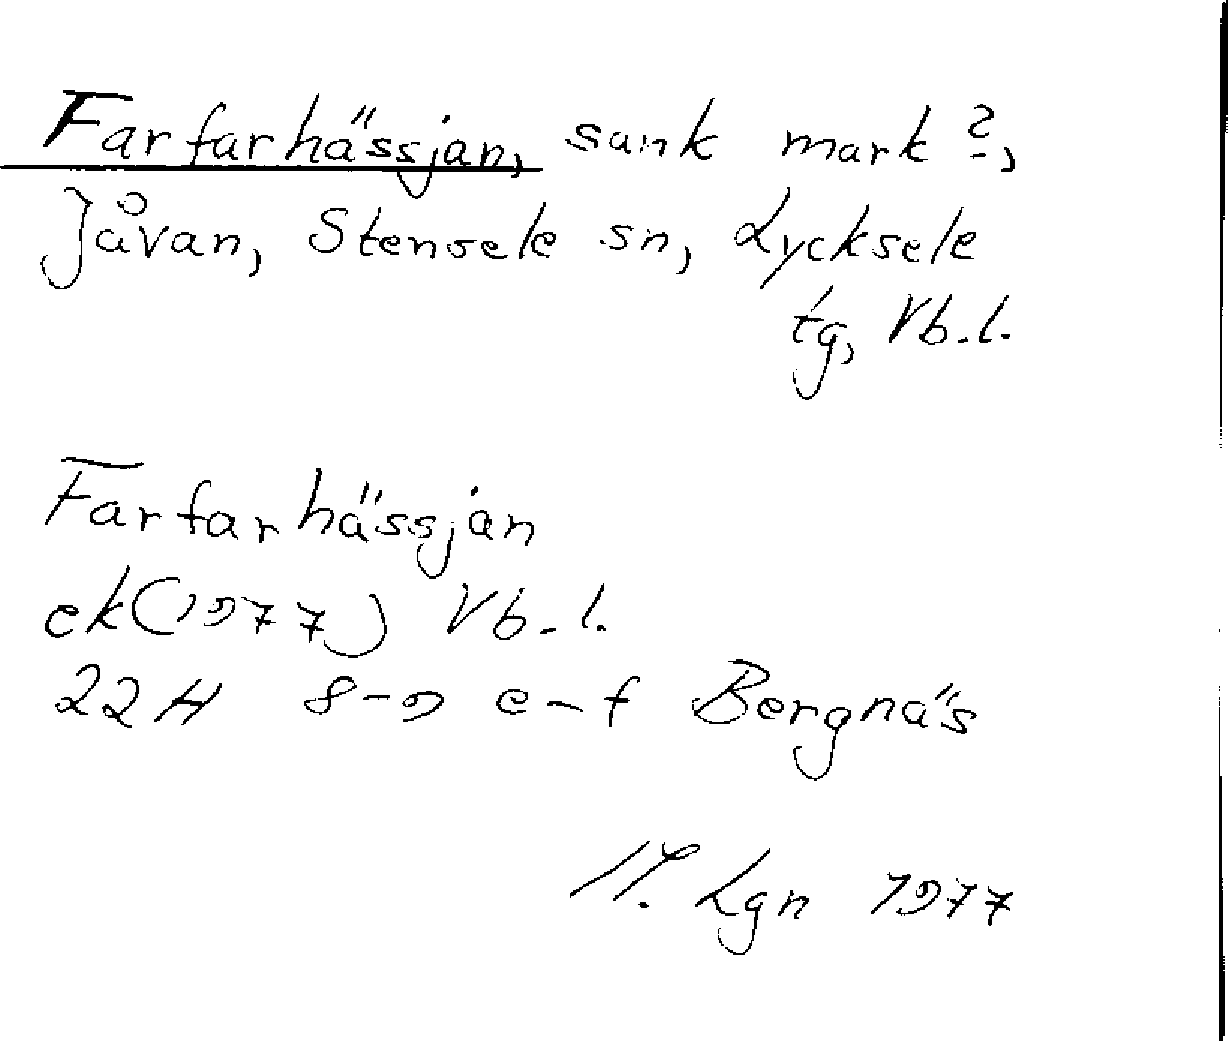 Farfarhässjan, sank mark?,
Jåvan, Stensele sn, Lycksele
tg, Vb.l.
Farfarhässjan
ek(1977) Vb.l.
22H 8-9 e-f Bergnäs
Lgn 1977